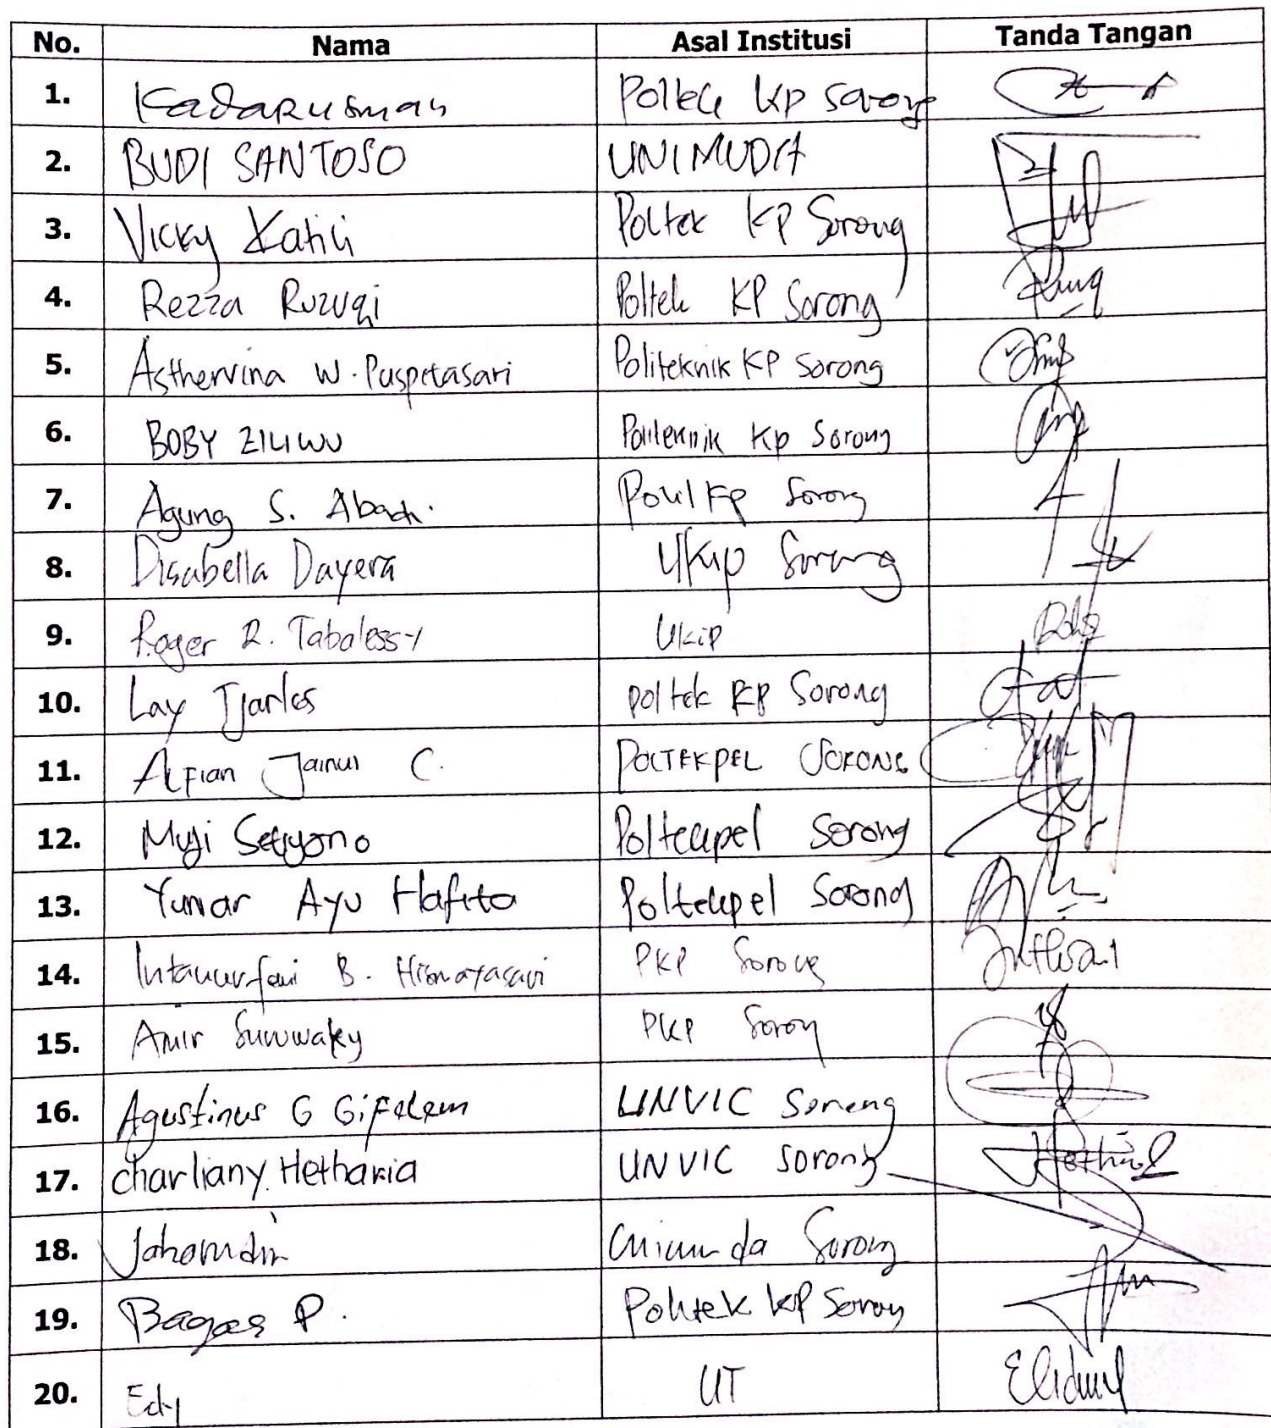 No. Nama Asal Institusi Tanda Tangan
1. Kadarusman Poltek KP Sorong
2. BUDI SANTOSO UNIMUDA
3. Vicky Katili Poltek KP Sorong
4. Rezza Ruzuqi Poltek KP Sorong
5. Asthervina W. Puspitasari Politeknik KP Sorong
6. BOBY ZILIWU Politeknik Kp Sorong
7. Agung S. Abadi. Kp Sorong
8. Disabella Dayera UKiP Sorong
9. Roger R. Tabalessy UKiP
10. Lay Tjarles poltek KP Sorong
11. Alfian Jainul C. POLTEKPEL SORONG
12. Muji Setiyono Poltekpel Sorong
13. Yumar Ayu Hafita Poltekpel Sorong
14. B. Hismayasari PKP Sorong
15. Amir Suruwaky PKP Sorong
16. Agustinus G Gifelem UNVIC Sorong
17. charliany Hetharia UNVIC Sorong
18. Sorong
19. Bagas P. Poltek KP Sorong
20. Edy UT